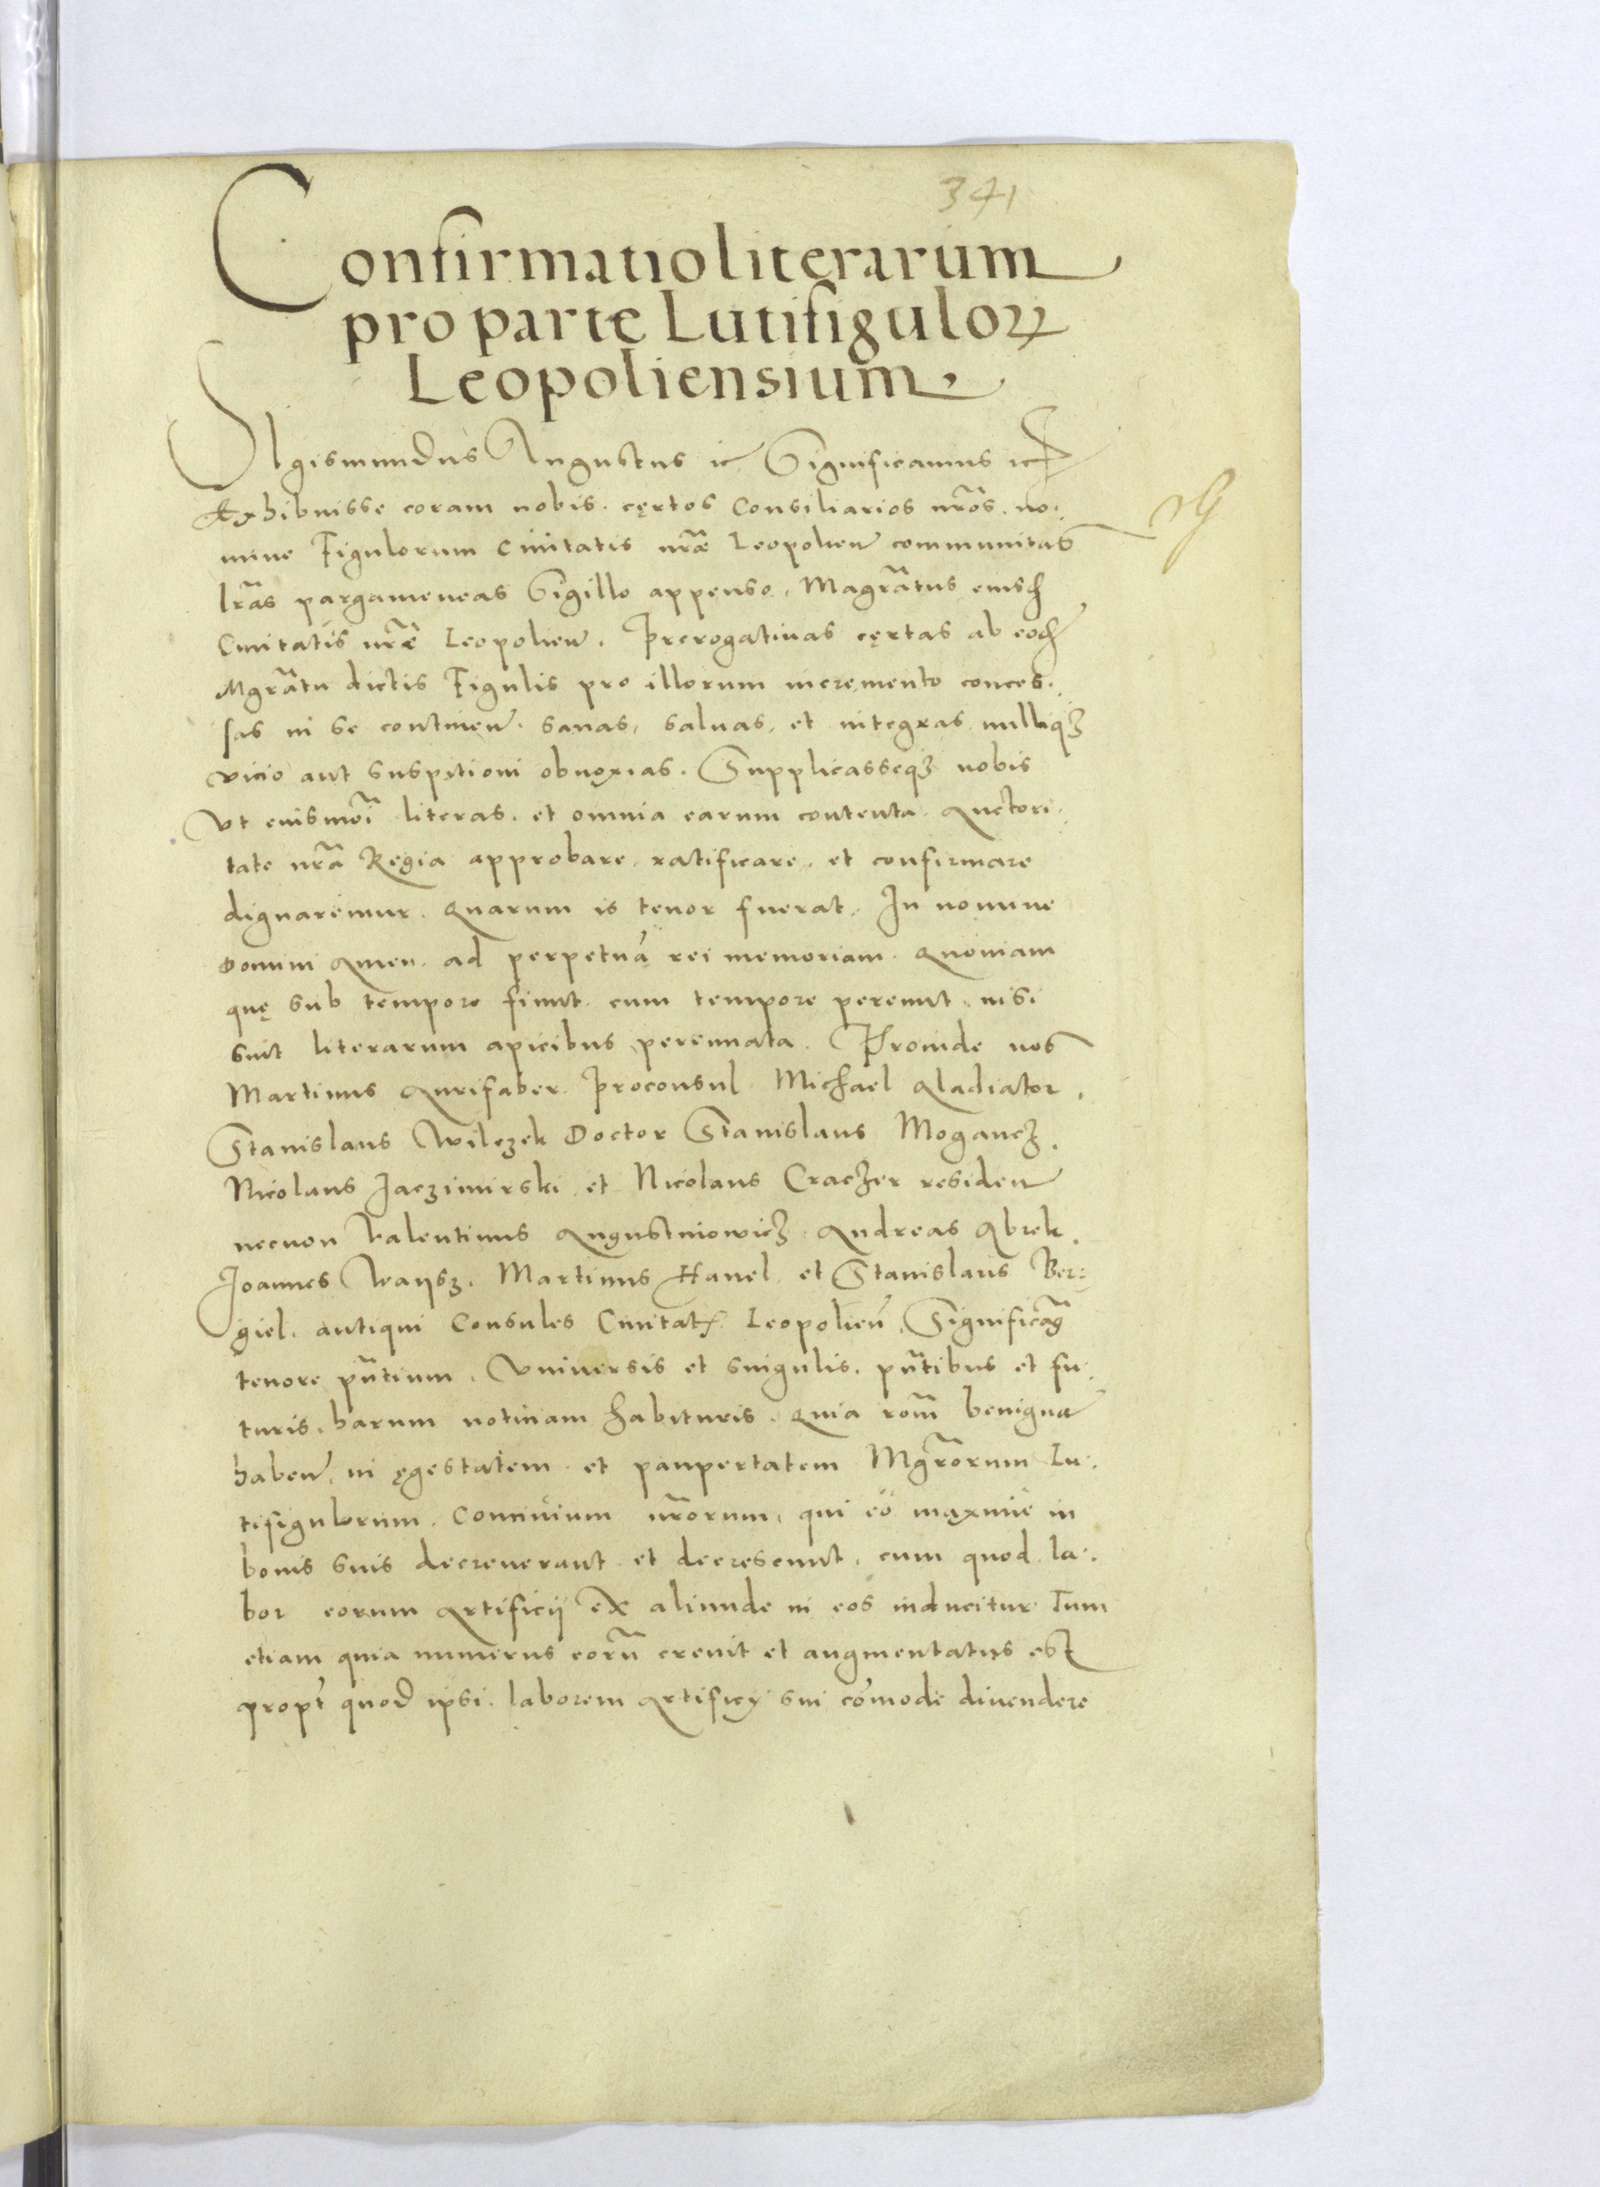 341
Confirmatio literarum
pro parte Lutifigulorꝝ
Leopoliensium.
Sigismundus Augustus ꝛc Significamus ꝛc
Exhibuisse coram nobis. cęrtos Consiliarios nr̃os. no.
mine Figulorum Ciuitatis nr̃ae Leopolien̄ communitas
lr̃as pargameneas Sigillo appenso. Magr̃atus eiusd
Ciuitatis nr̃e Leopolien̄. Prerogatiuas cęrtas ab eod
Mgr̃atu dictis Figulis pro illorum incremento conces.
sas in se continen̄. sanas, saluas, et integras nulliqȝ
vicio aut suspitioni obnoxias. Supplicasseqȝ nobis
Vt eiusmoi literas. et omnia earum contenta. Auctori.
tate nr̃a Regia approbare. ratificare. et confirmare
dignaremur. Quarum is tenor fuerat. In nomine
Domini Amen. ad perpetuā rei memoriam. Quoniam
quę sub tempore fiunt. cum tempore pereunt, nisi
sint literarum apicibus perennata. Proinde nos
Martinus Aurifaber Proconsul Michael Gladiator.
Stanislaus Wilczek Doctor Stanislaus Mogancz.
Nicolaus Jaczimirski et Nicolaus Craczer residen̄
necnon Valentinus Augustinowicz. Andreas Abrek.
Joannes Waÿsz. Martinus Hanel et Stanislaus Ber:
giel. antiqui Consules Ciuitatꝭ Leopolien̄. Significam̄
tenore pñtium. Vniuersis et singulis. pñtibus et fu.
turis. harum notitiam habituris. Quia rom̄ benigne
haben̄. in ęgestatem et paupertatem Mgr̃orum Lu.
tifigulorum. Conciuium nr̃orum. qui eo maxime in
bonis suis decreuerant et decrescunt. cum quod la.
bor eorum Artificii ex aliunde in eos inducitur Tum
etiam quia numerus eorū creuit et augmentatus est
propt̄ quod ipsi. laborem Artificÿ sui cōmode diuendere